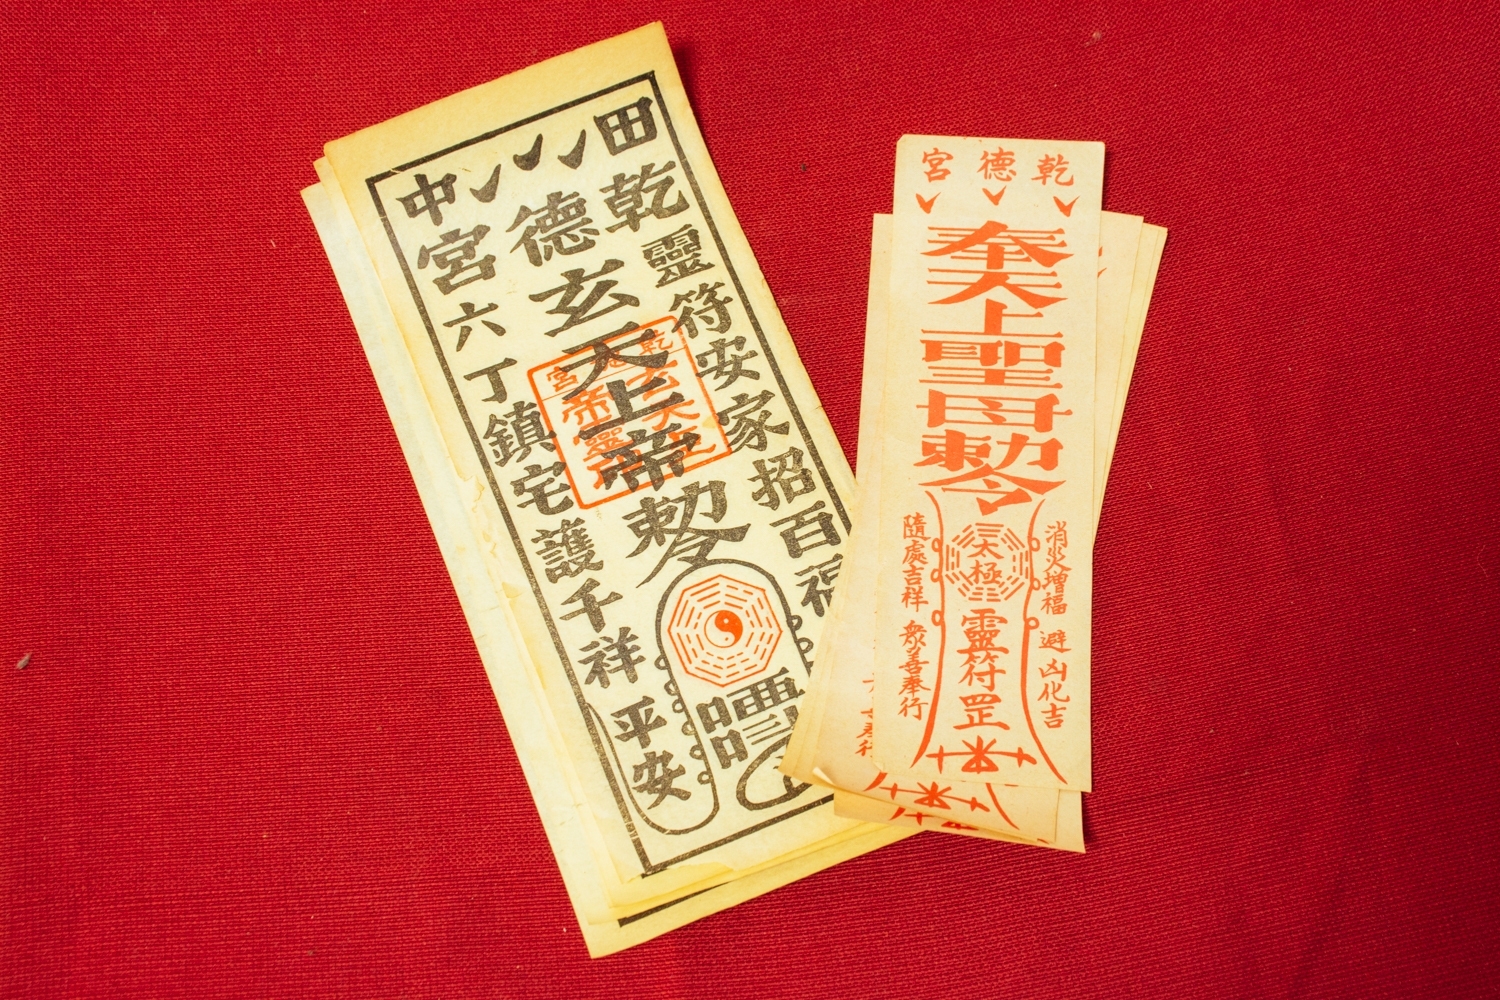 田 中
乾德宮
靈符安家招百福
玄天上帝敕令
六丁鎮宅護千祥
平安
乾德宮
奉天上聖母敕令
消災增福 避凶化吉
太極
靈符罡
隨處吉祥 眾善奉行